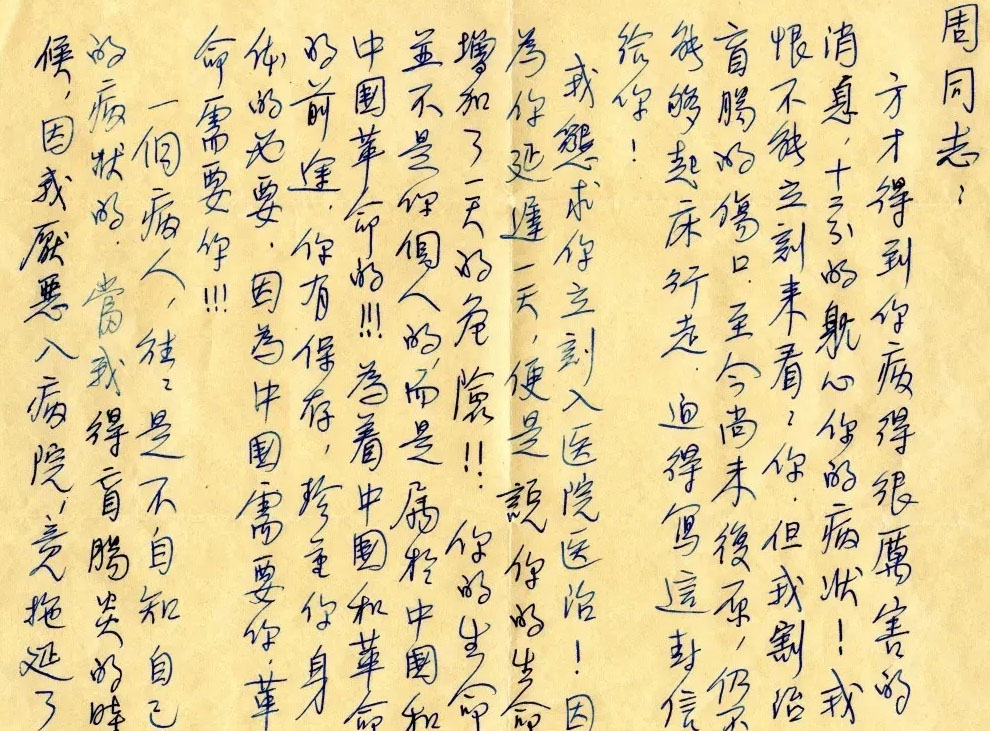 周同志：
方才得到你病得很厲害的
消息，十二分的躭心你的病狀！我
恨不能立刻来看看你．但我割治
盲腸的傷口．至今尚未復原，仍不
能够起床行走．迫得寫這封信
给你！
我懇求你立刻入医院医治！因
為你延遲一天，便是說你的生命
增加了一天的危險!!．你的生命
並不是你個人的，而是屬於中國和
中國革命的!!!為着中國和革命
的前途．你有保存，珍重你身
体的必要．因為中国需要你．革
命需要你!!!
一個病人，往々是不自知自己
的病狀的．當我得盲腸炎的時
候，因我厭惡入病院，竟拖延了